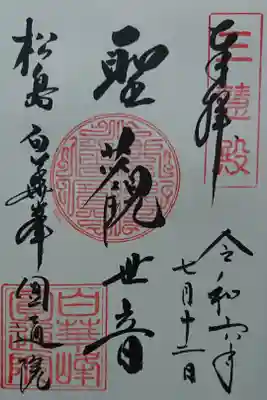 奉拝
三慧殿
令和六年
七月十二日
聖観世音
松島 白華峯 円通院
白華峰
円通院